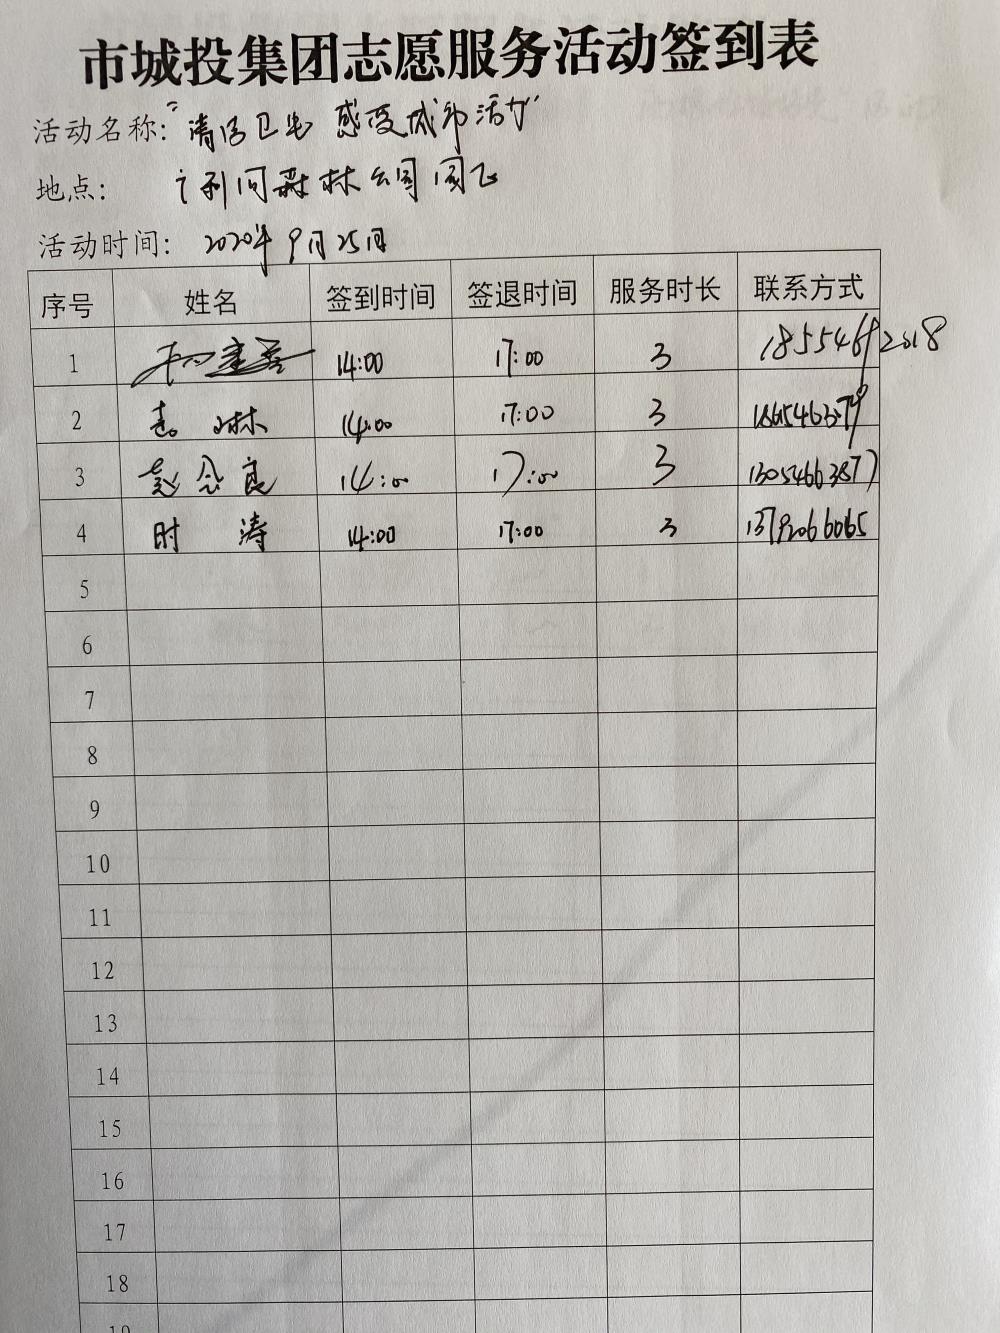 市城投集团志愿服务活动签到表
活动名称：“清洁卫生 感受城市活力”
地点： 森林公园
活动时间： 2020年9月25日
序号 姓名 签到时间 签退时间 服务时长 联系方式
1 14:00 17:00 3 18554692018
2 琳 14:00 17:00 3
3 赵念良 14:00 17:00 3 13054663877
4 时涛 14:00 17:00 3 13792066065
5
6
7
8
9
10
11
12
13
14
15
16
17
18
19